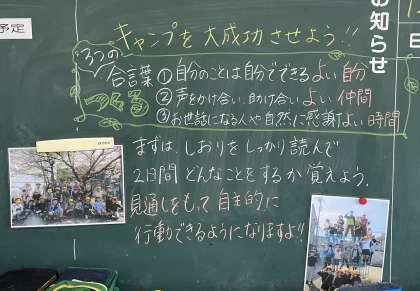 予定
お知らせ
日
キャンプを大成功させよう!!
3つの合言葉
①自分のことは自分でできるよい自分
②声をかけ合い、助け合いよい仲間
③お世話になる人や自然に感謝よい時間
まずは、しおりをしっかり読んで
2日間どんなことをするか覚えよう。
見通しをもって自主的に
行動できるようになりますよ!!